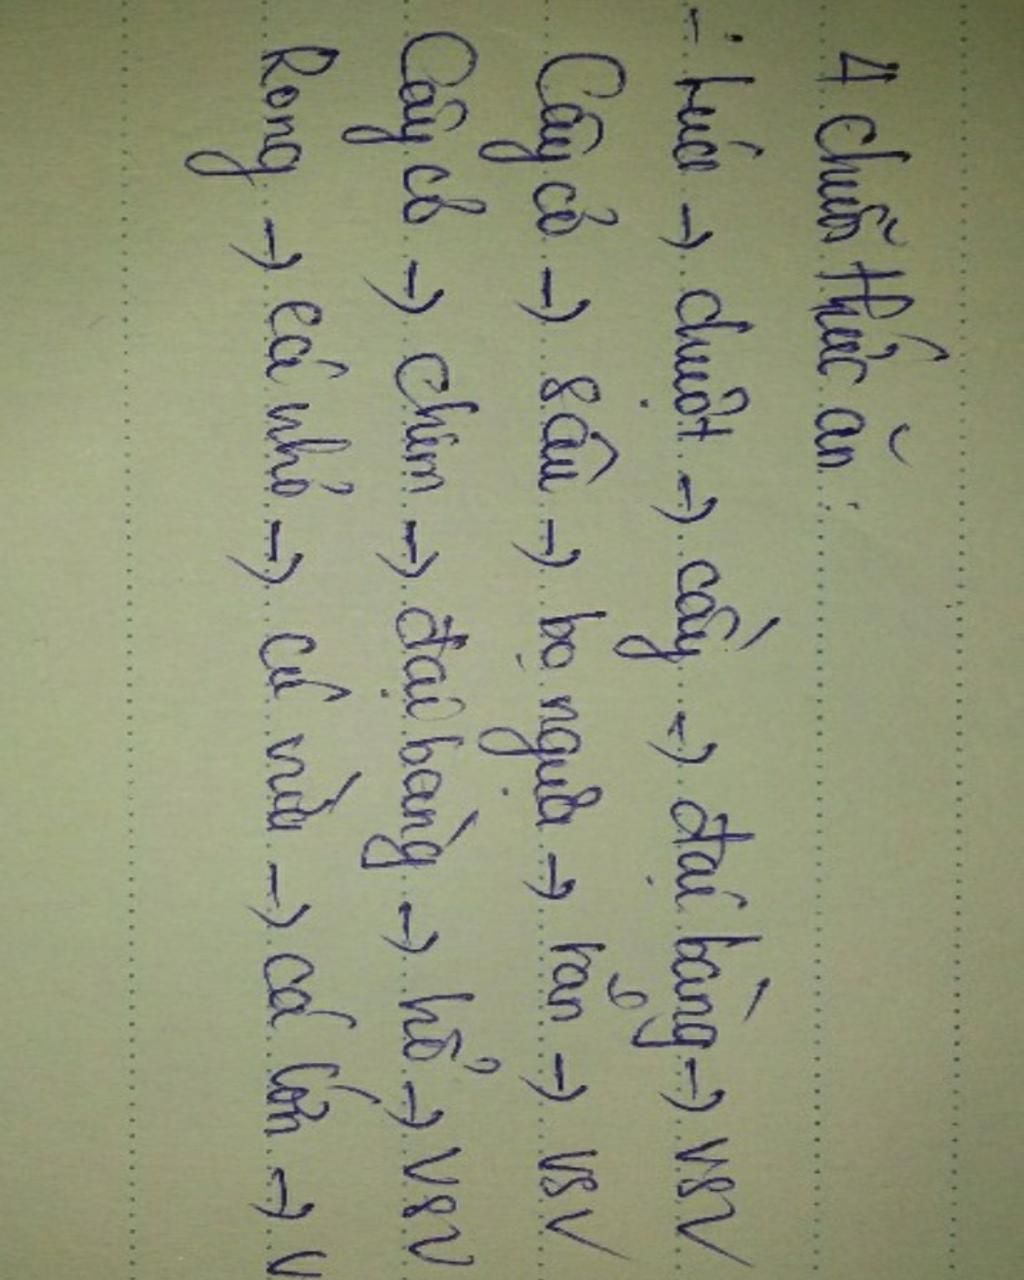 4 chuỗi thức ăn:
- Lúa → chuột → cầy → đại bàng → VSV
Cây cỏ → sâu → bọ ngựa → rắn → VSV
Cây cỏ → chim → đại bàng → hổ → VSV
Rong → cá nhỏ → cá vừa → cá lớn → V